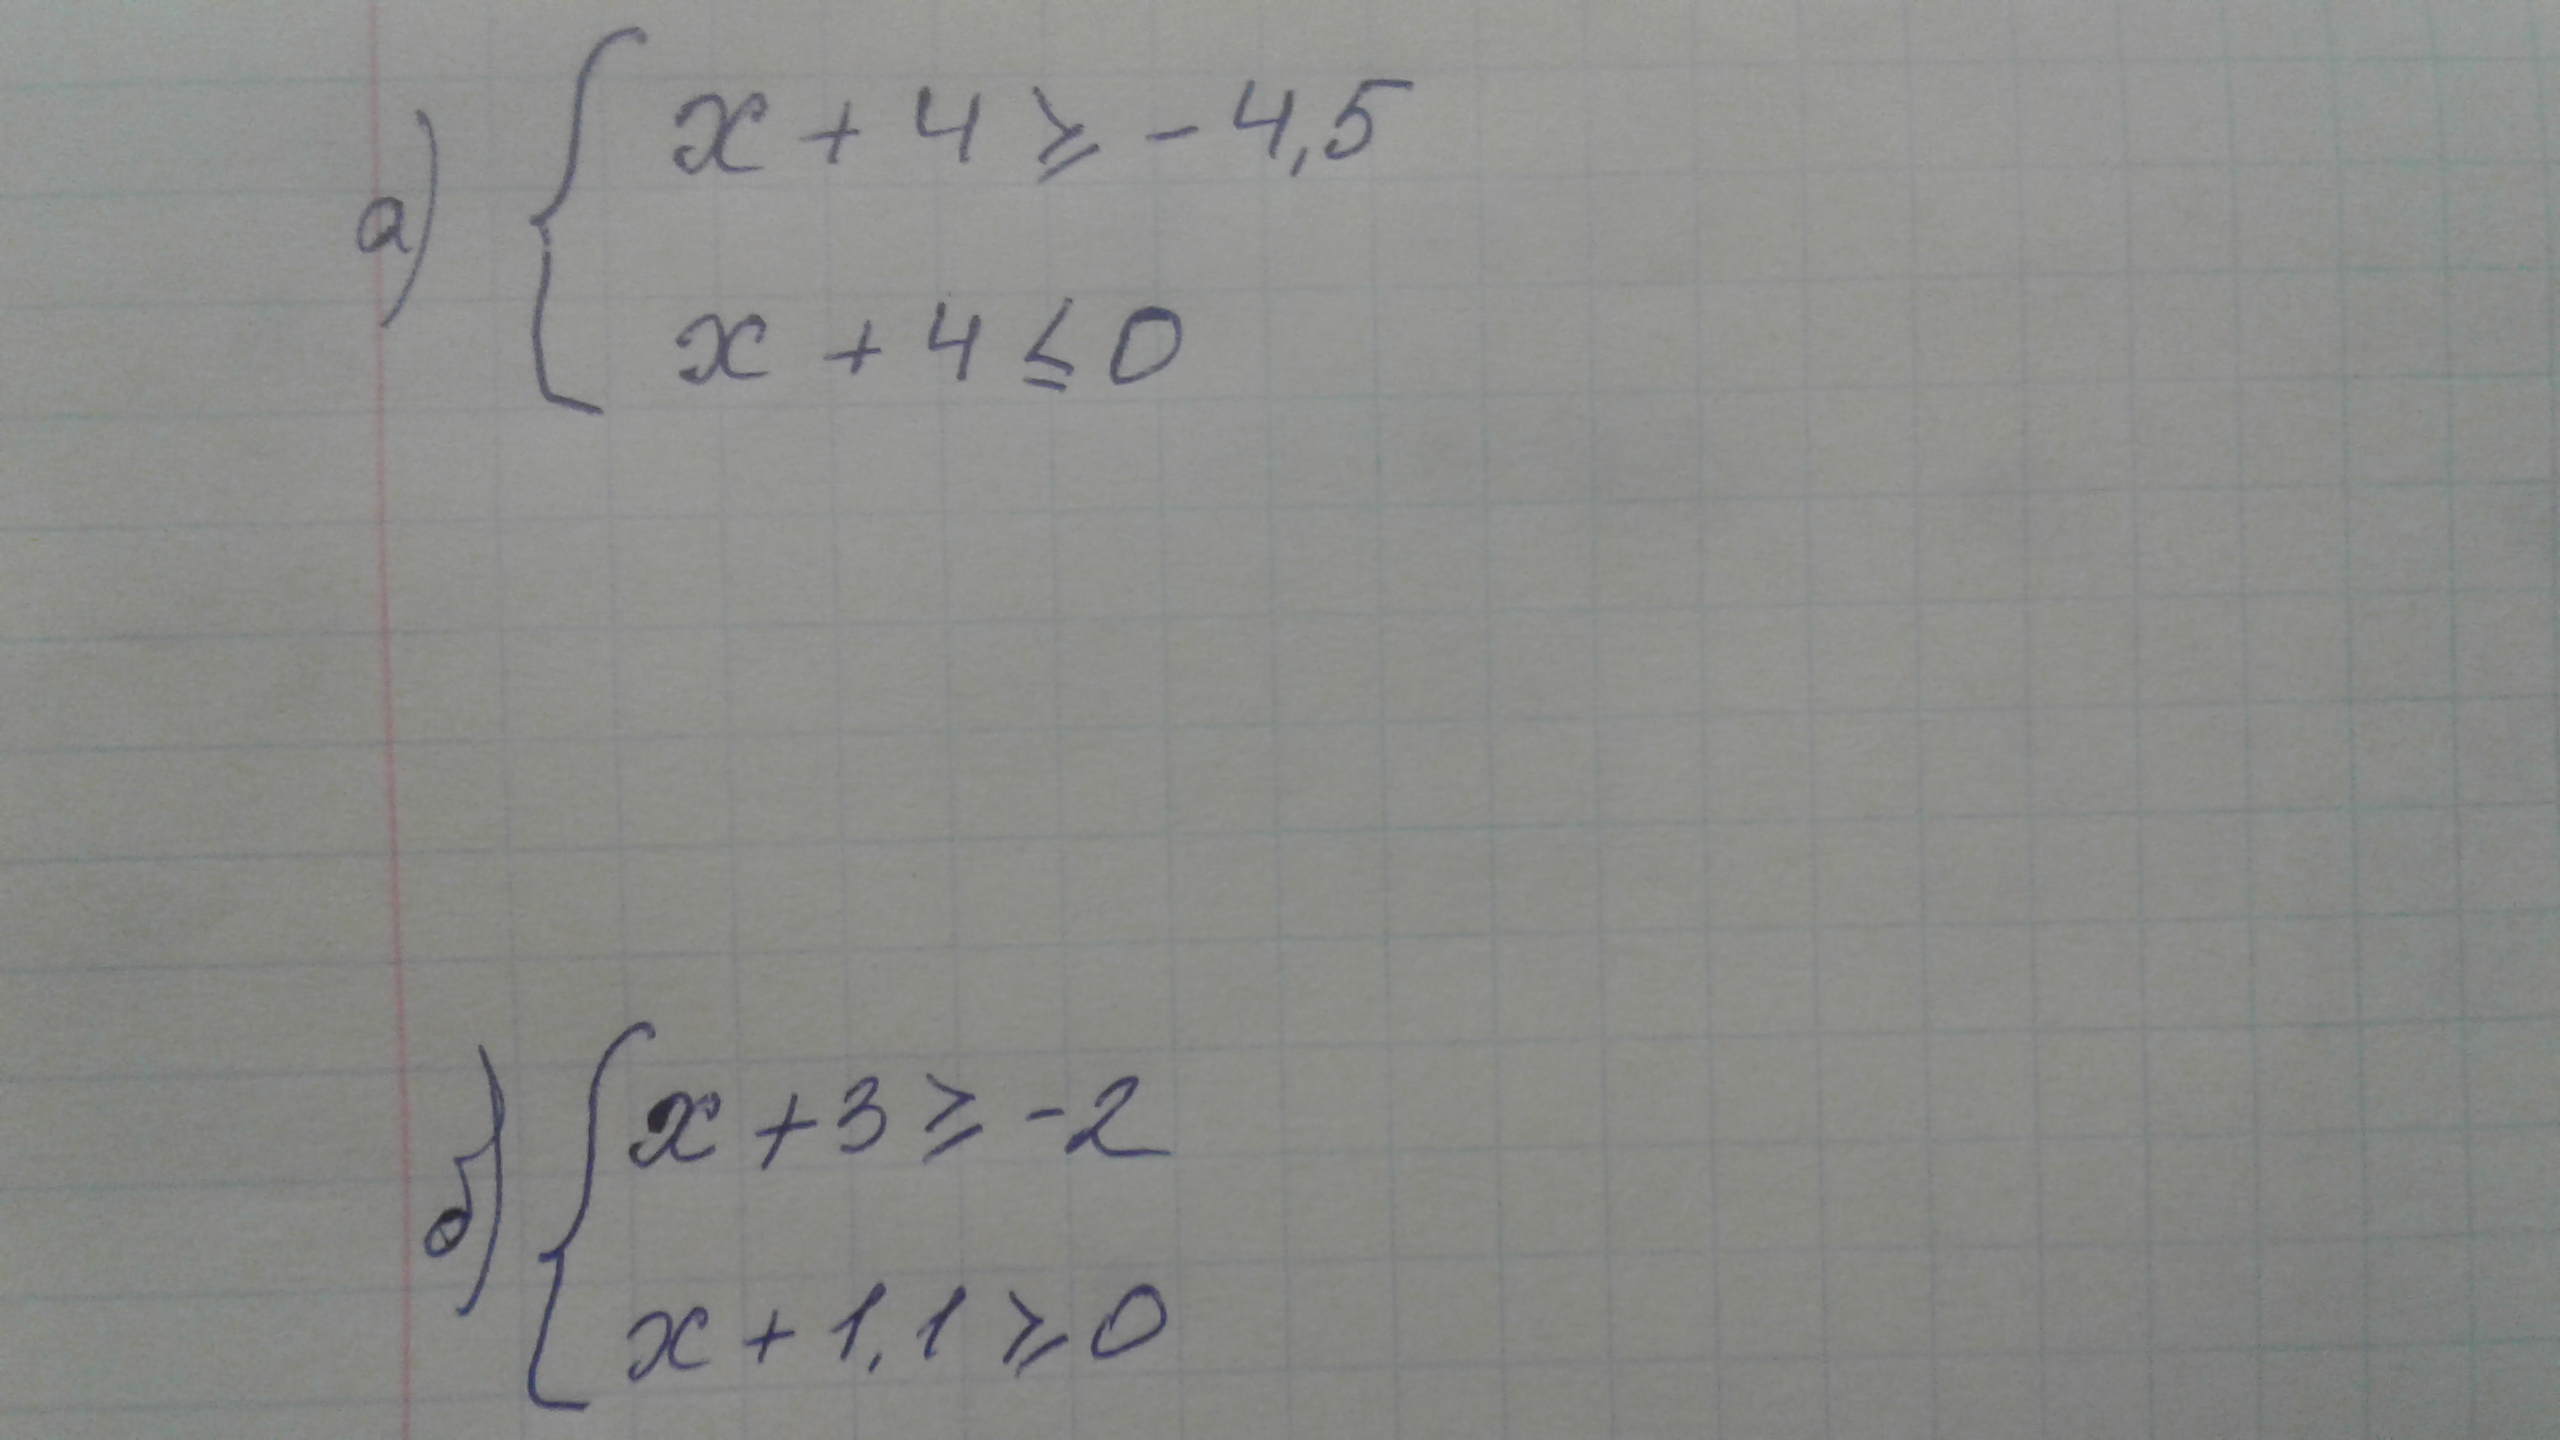 а) { x + 4 ⩾ - 4,5
x + 4 ⩽ 0
б) { x + 3 ⩾ - 2
x + 1,1 ⩾ 0